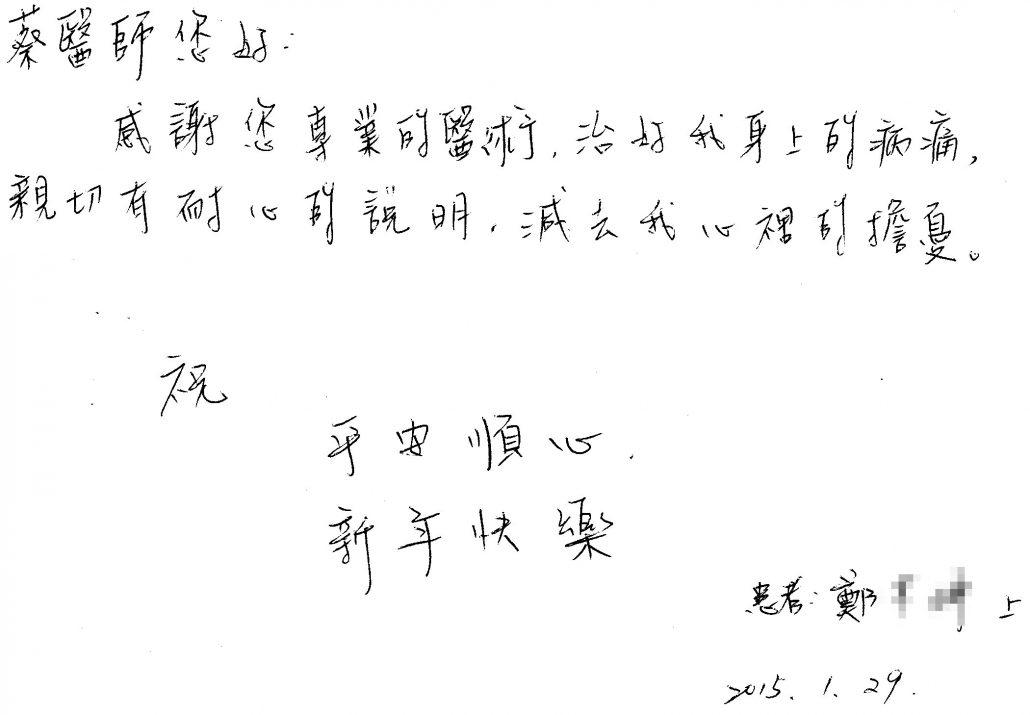 蔡醫師您好:
感謝您專業的醫術,治好我身上的病痛,
親切有耐心的說明,減去我心裡的擔憂。
祝
平安順心.
新年快樂
患者:鄭 上
2015.1.29.